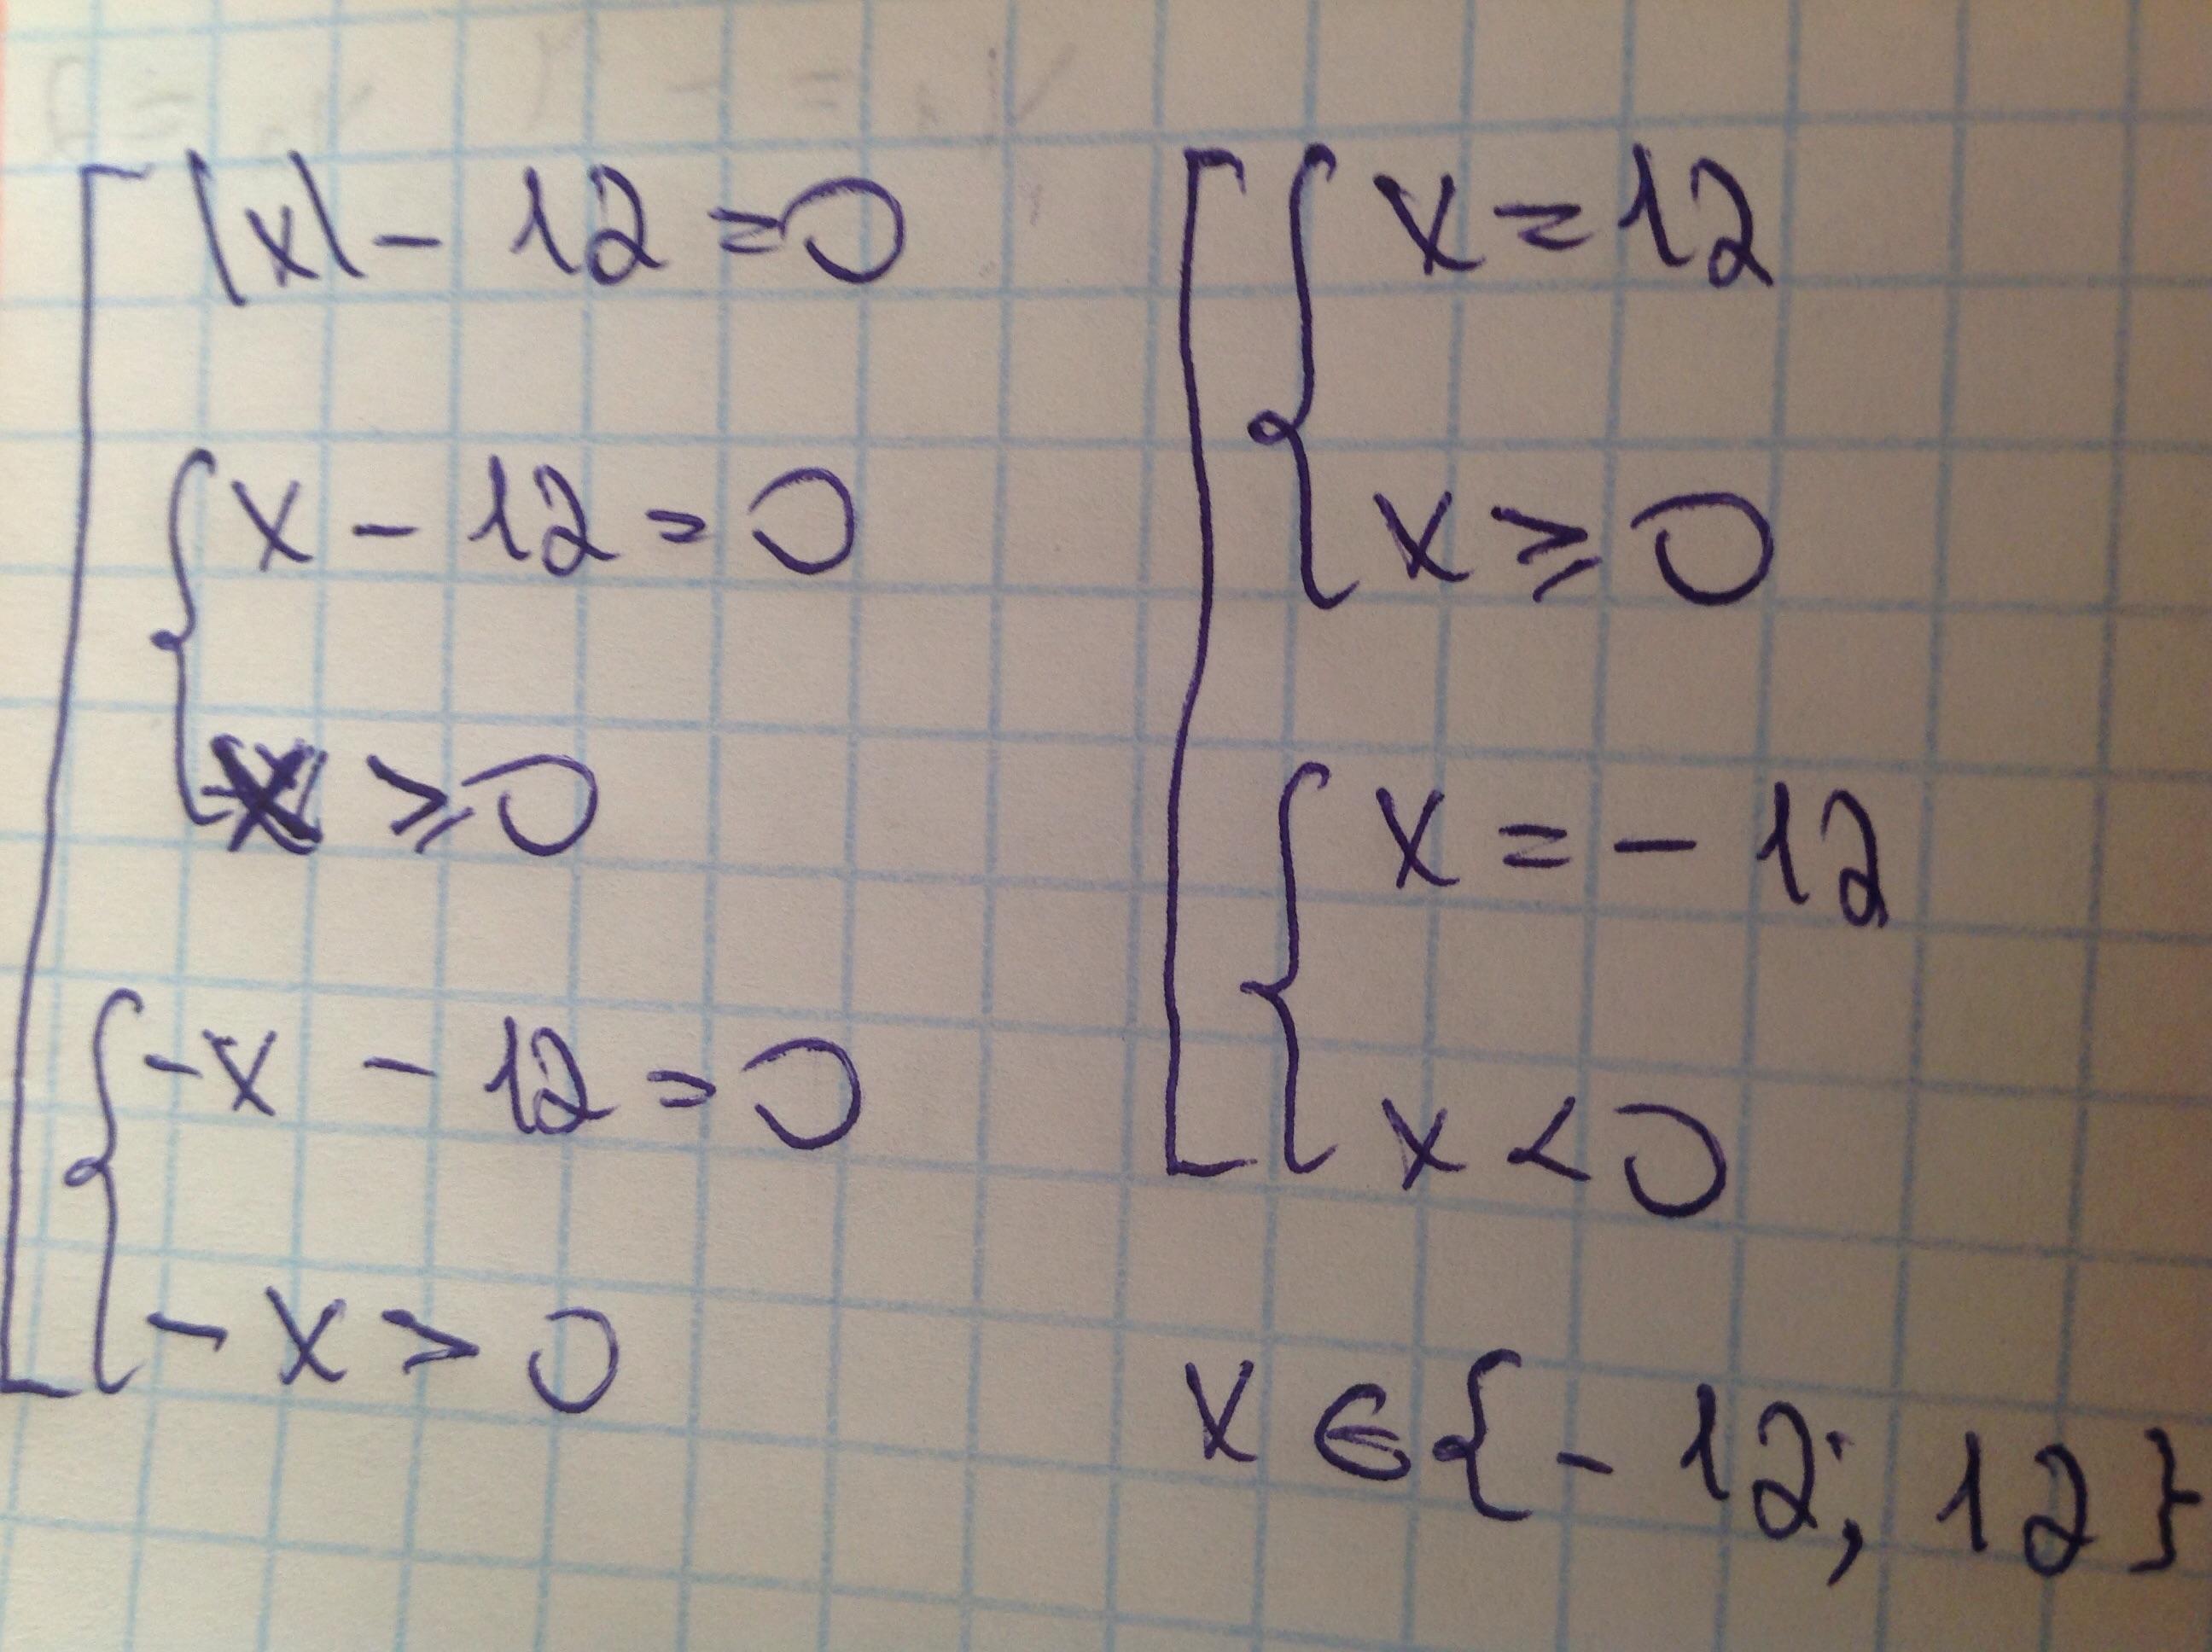 |x| - 12 = 0
x - 12 = 0
x ⩾ 0
-x - 12 = 0
- x > 0
x = 12
x ⩾ 0
x = - 12
x < 0
x ∈ {- 12; 12}